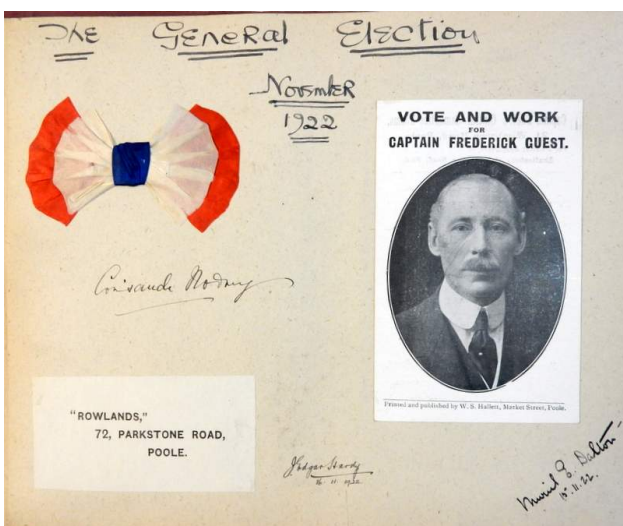 The General Election
November
1922
VOTE AND WORK
FOR
CAPTAIN FREDERICK GUEST.
Printed and published by W. S. Hallett, Market Street, Poole.
"ROWLANDS,"
72, PARKSTONE ROAD,
POOLE.
Hardy
Muriel E. Dalton
15.11.22.